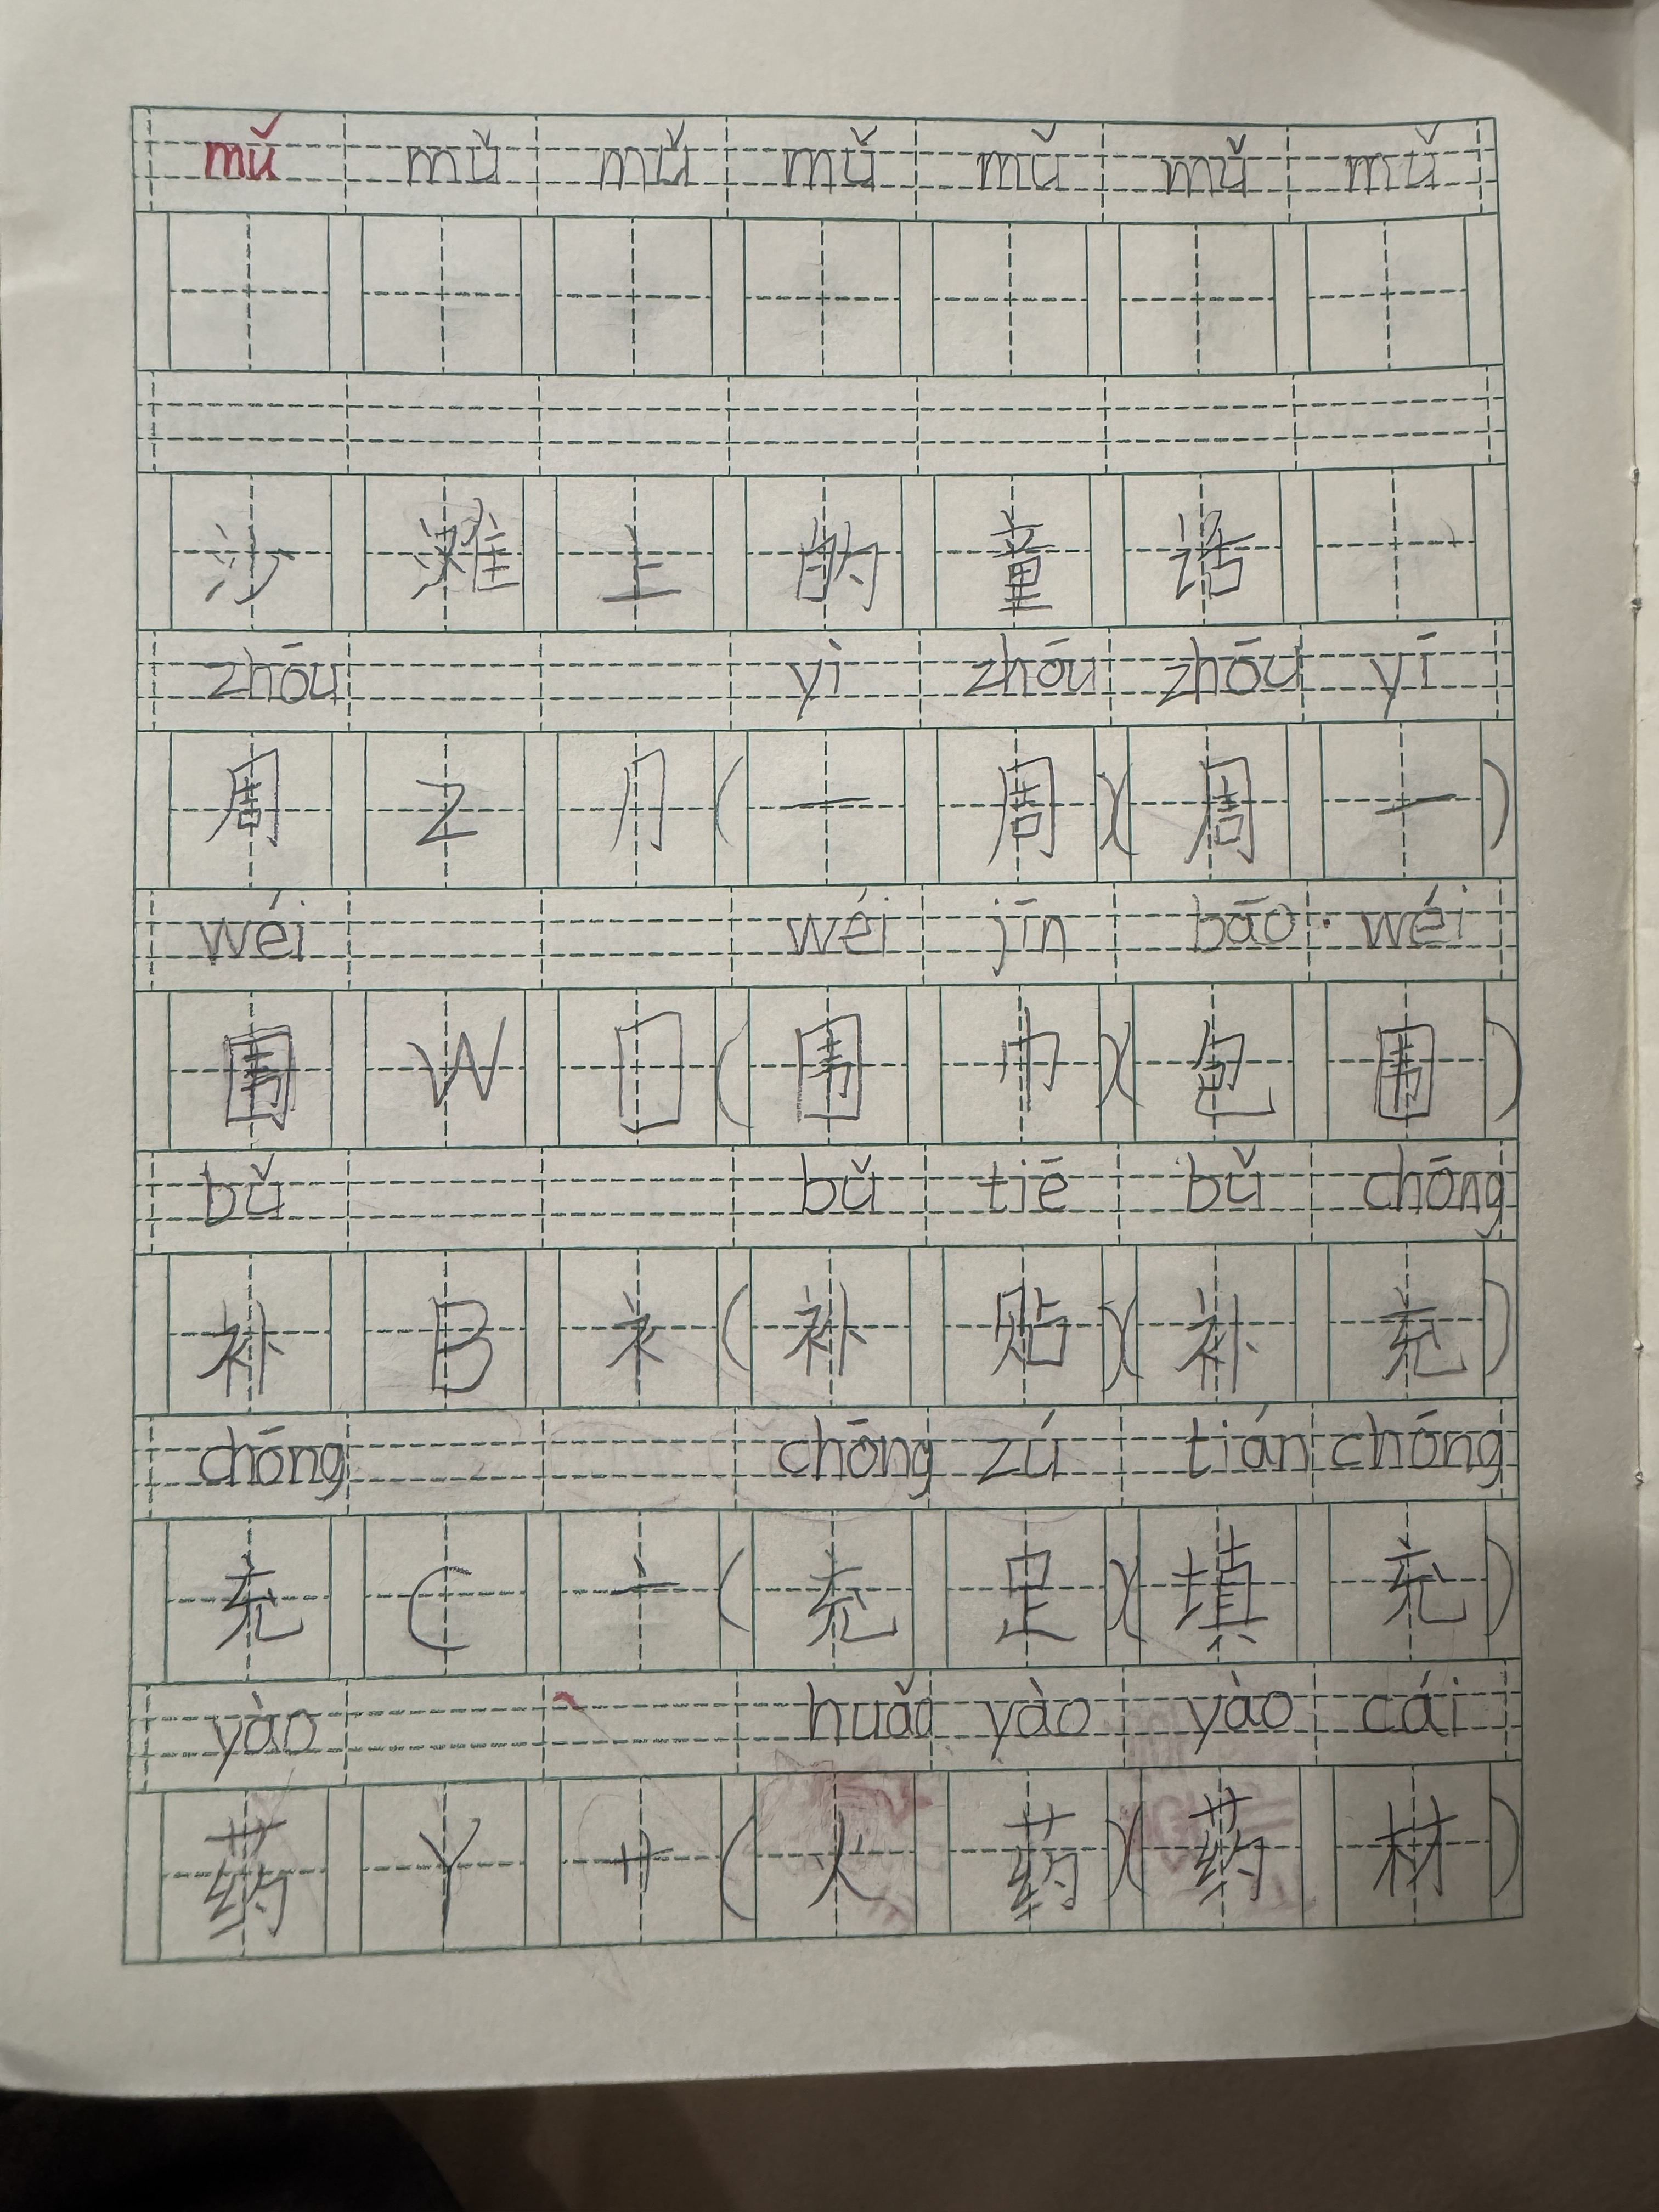 mǔ mǔ mǔ mǔ mǔ mǔ mǔ
沙滩上的童话
zhōu yì zhōu zhōu yī
周 Z 冂 (一周)(周一)
wéi wéi jīn bāo wéi
围 W 囗 (围巾)(包围)
bǔ bǔ tiē bǔ chōng
补 B 衤 (补贴)(补充)
chōng chōng zú tián chōng
充 C 亠 (充足)(填充)
yào huǎo yào yào cái
药 Y 艹 (火药)(药材)